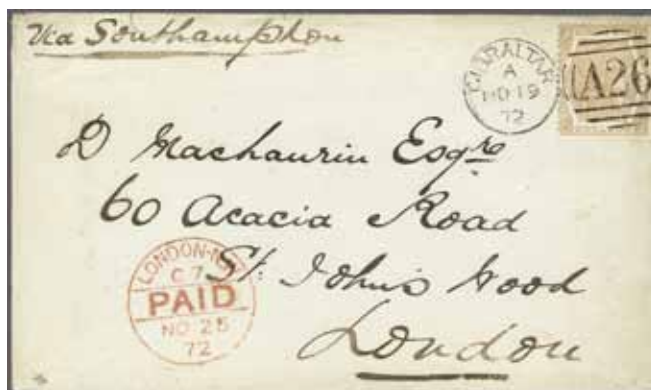 Via Southampton
GIBRALTAR
A
NO 19
72
A26
D Maclaurin Esqre
60 Acacia Road
St. John's Wood
London
LONDON-N.W
C7
PAID
NO 25
72